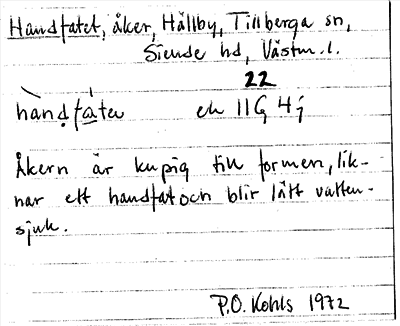 Handfatet, åker, Hällby, Tillberga sn,
Siende hd, Västm. l.
22
hàndfá̱teu ek 11G 4j
Åkern är kupig till formen, lik-
nar ett handfat och blir lätt vatten-
sjuk.
P.O. Kohls 1972